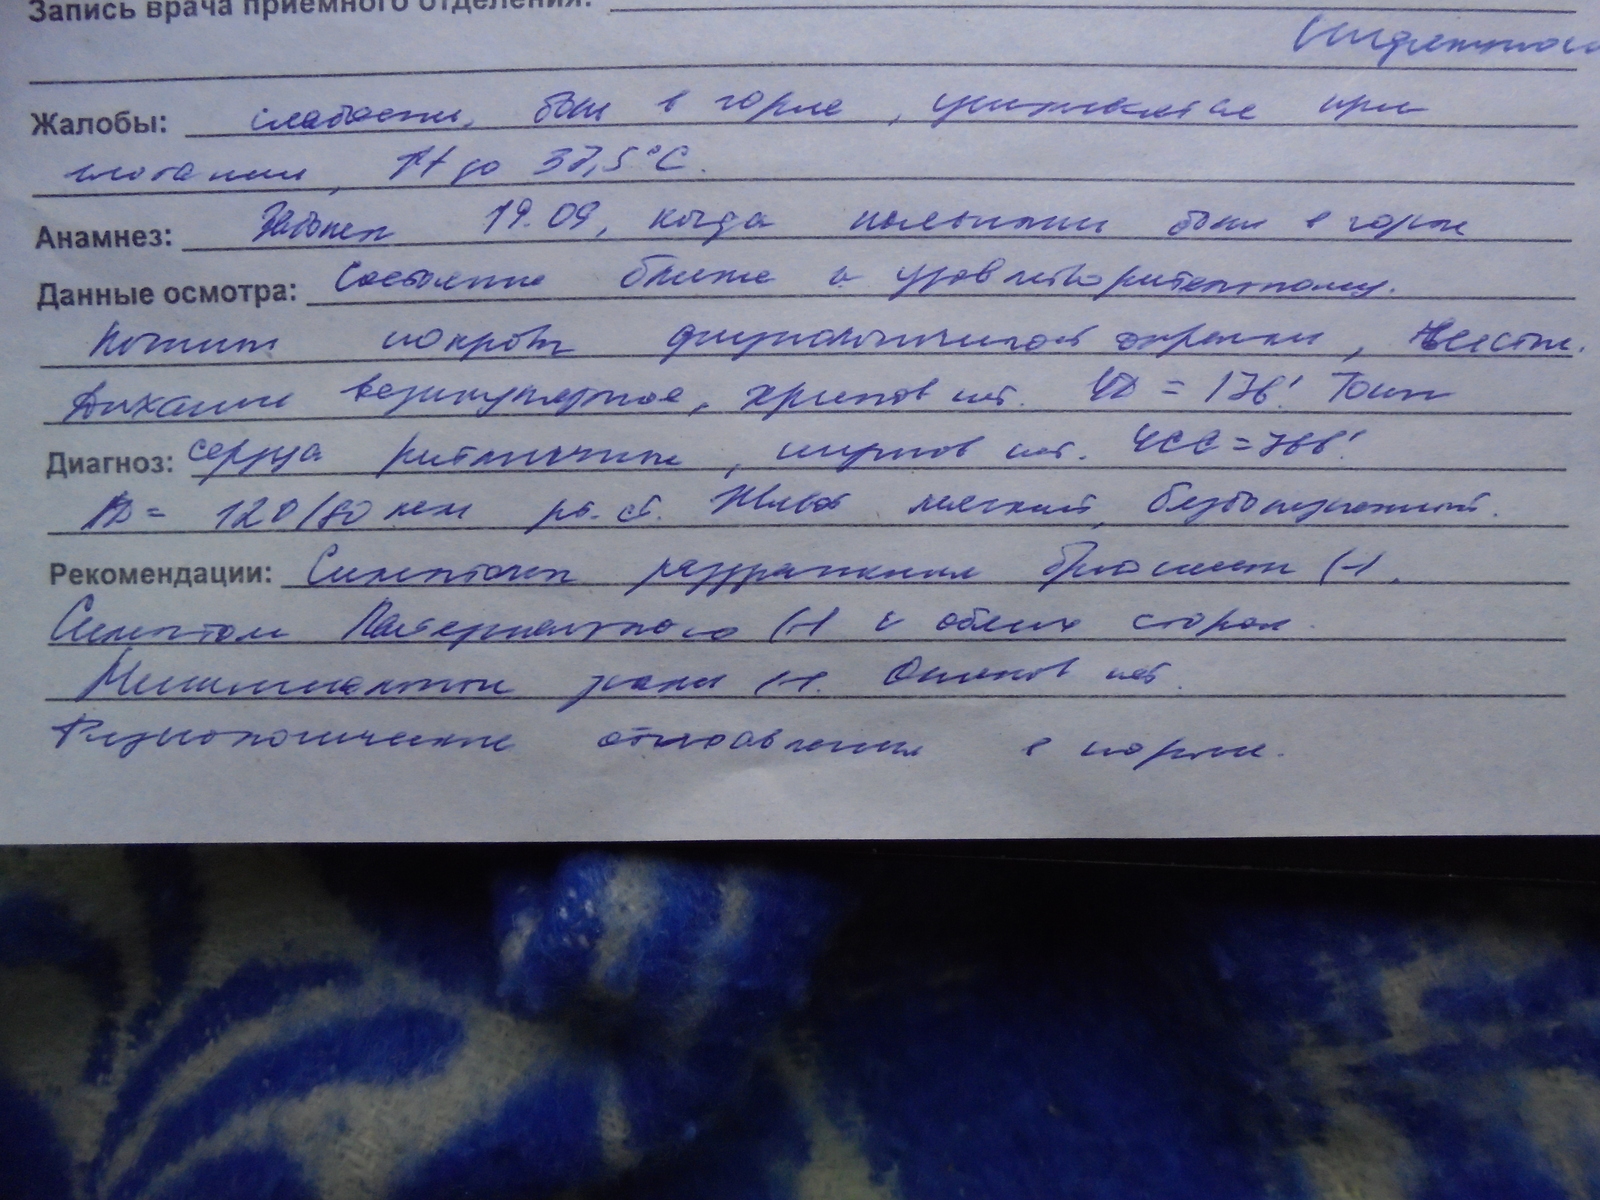 Запись врача приёмного отделения:
Жалобы: слабость, боли в горле, усиливается при
глотании, ↑t до 37,5°С.
Анамнез: Заболел 19.09, когда появились боли в горле
Данные осмотра: Состояние ближе к удовлетворительному.
Кожные покровы физиологической окраски, чистые.
Дыхание везикулярное, хрипов нет. ЧД = 17в! Тоны
Диагноз: сердца ритмичные, шумов нет. ЧСС = 76в!
АД = 120/80 мм рт. ст. Живот мягкий, безболезненный.
Рекомендации: Симптомы раздражения брюшины (-).
Симптом Пастернацкого (-) с обеих сторон.
Менингеальные знаки (-). Отеков нет.
Физиологические отправления в норме.